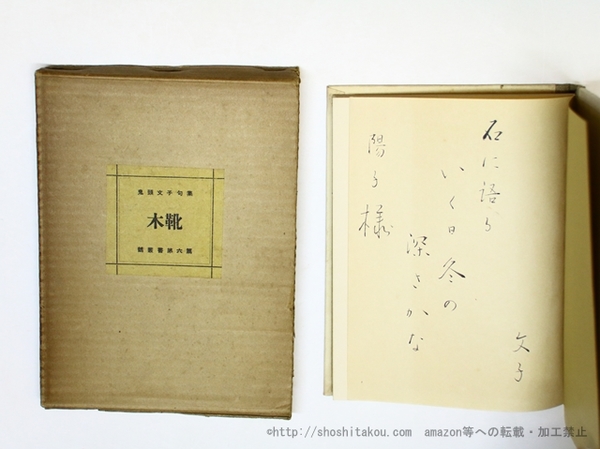 鬼頭文子句集
木靴
石に語る
いく日冬の
深さかな
文子
陽子様
©http://shoshitakou.com amazon等への転載・加工禁止